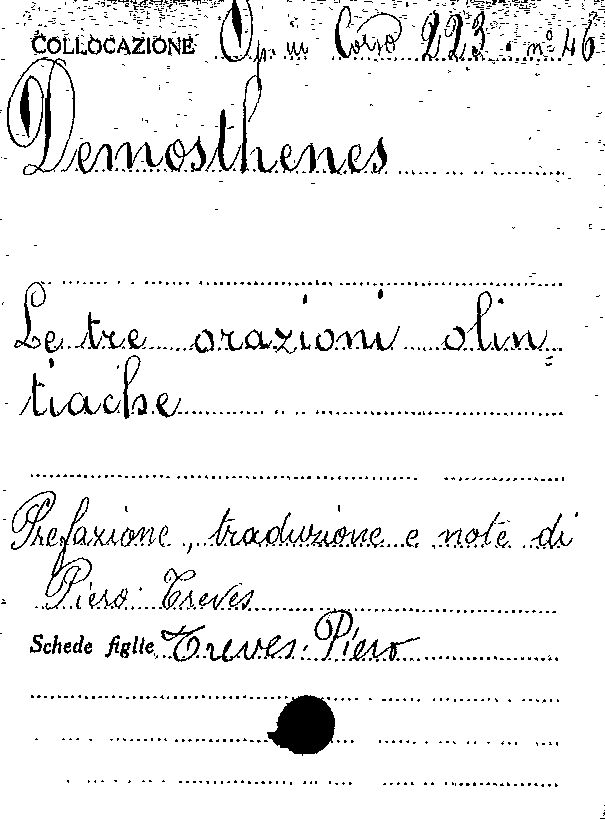 COLLOCAZIONE Op. in Corso 223. nº 46
Demosthenes
Le tre orazioni olin=
tiache
Prefazione, traduzione e note di
Piero Treves
Schede figlie Treves. Piero